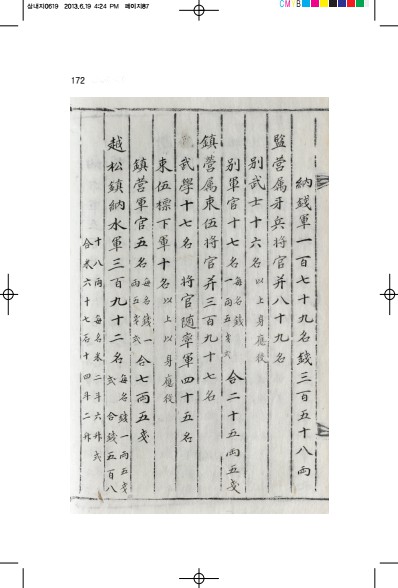 삼내지0619 2013.6.19 4:24 PM 페이지87
CM B
172
納錢軍一百七十九名錢三百五十八兩
監營属牙兵將官并八十九名
別武士十六名以上身應役
別軍官十七名每名錢一兩五戔式合二十五兩五戔
鎮營属束伍將官并三百九十七名
武學十七名 將官随率軍四十五名
束伍標下軍十名以上以身應役
鎮營軍官五名每名錢一兩五戔式合七兩五戔
越松鎮納水軍三百九十二名每名錢一兩五戔式合錢五百八
十八兩 每名米二斗六升式
合米六十七石十四斗二升